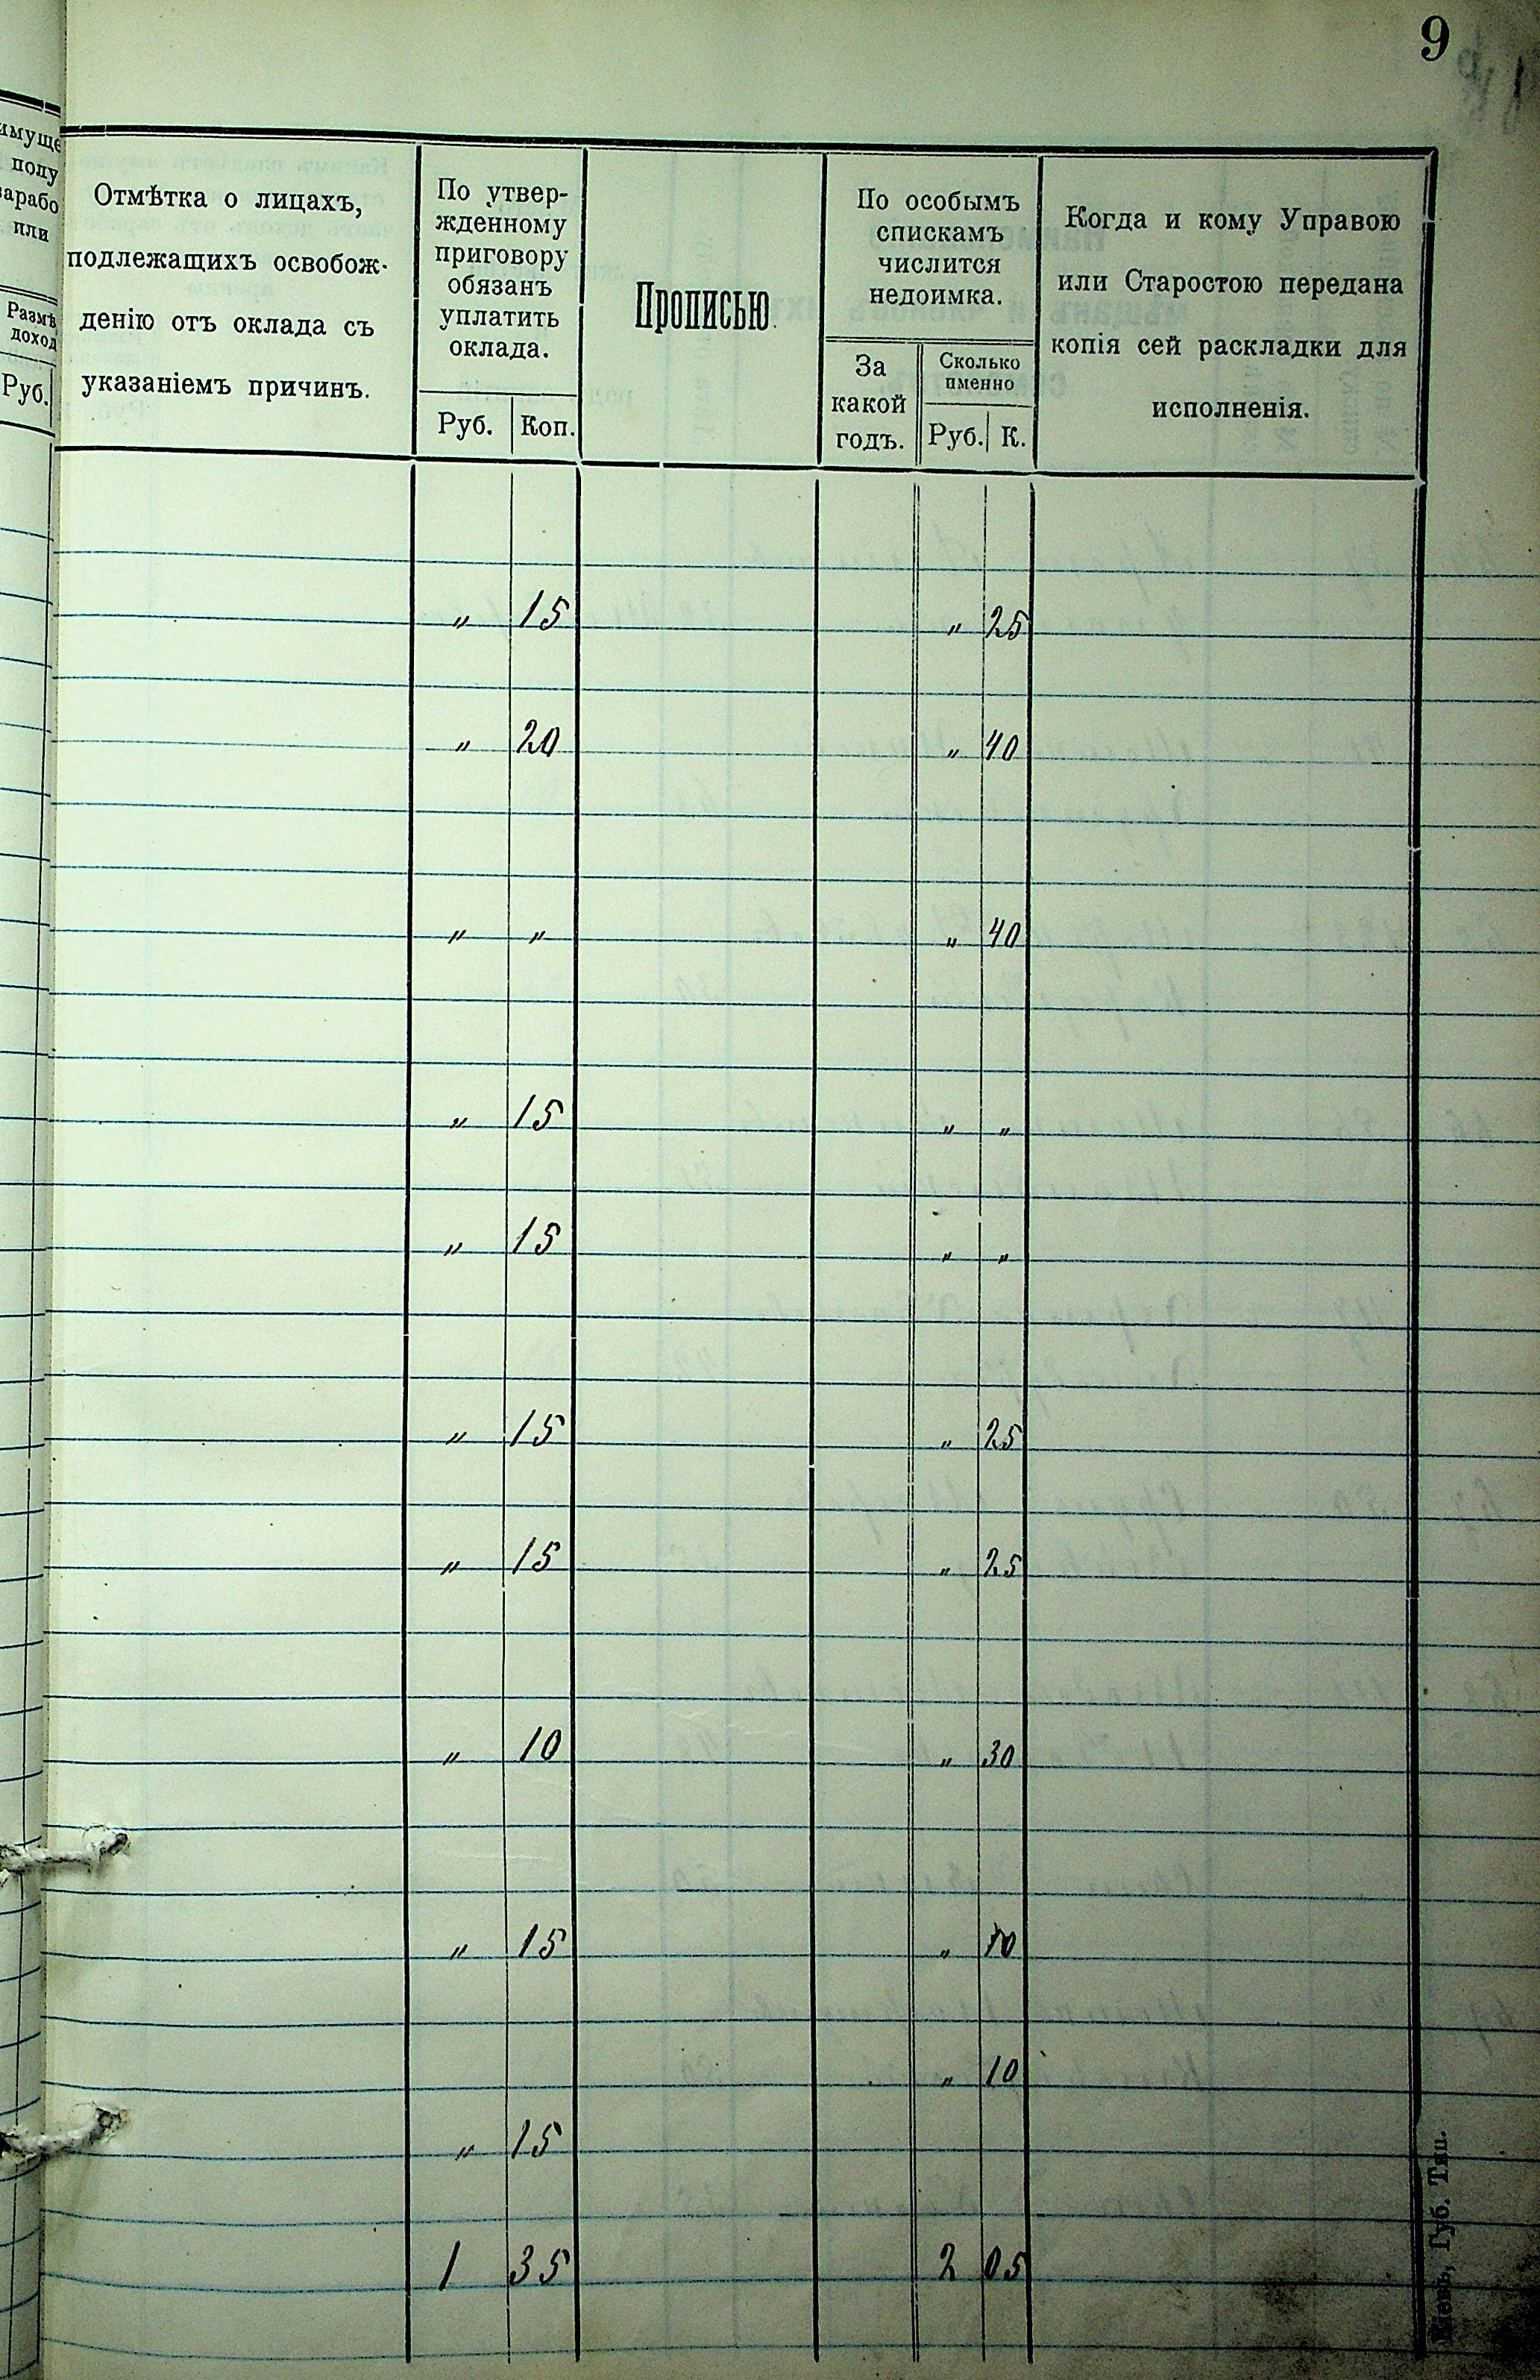 9
имуще
полу
зарабо
или
Размѣ
доход
Руб.
Отмѣтка о лицахъ,
подлежащихъ освобож-
денію отъ оклада съ
указаніемъ причинъ.
По утвер-
жденному
приговору
обязанъ
уплатить
оклада.
Руб. Коп.
Прописью.
По особымъ
спискамъ
числится
недоимка.
За
какой
годъ.
Сколько
именно
Руб. К.
Когда и кому Управою
или Старостою передана
копія сей раскладки для
исполненія.
" 15 " 25
" 20 " 40
" " " 40
" 15 " "
" 15 " "
" 15 " 25
" 15 " 25
" 10 " 30
" 15 " 10
" 10
" 15
1 35 2 05
Губ. Тип.